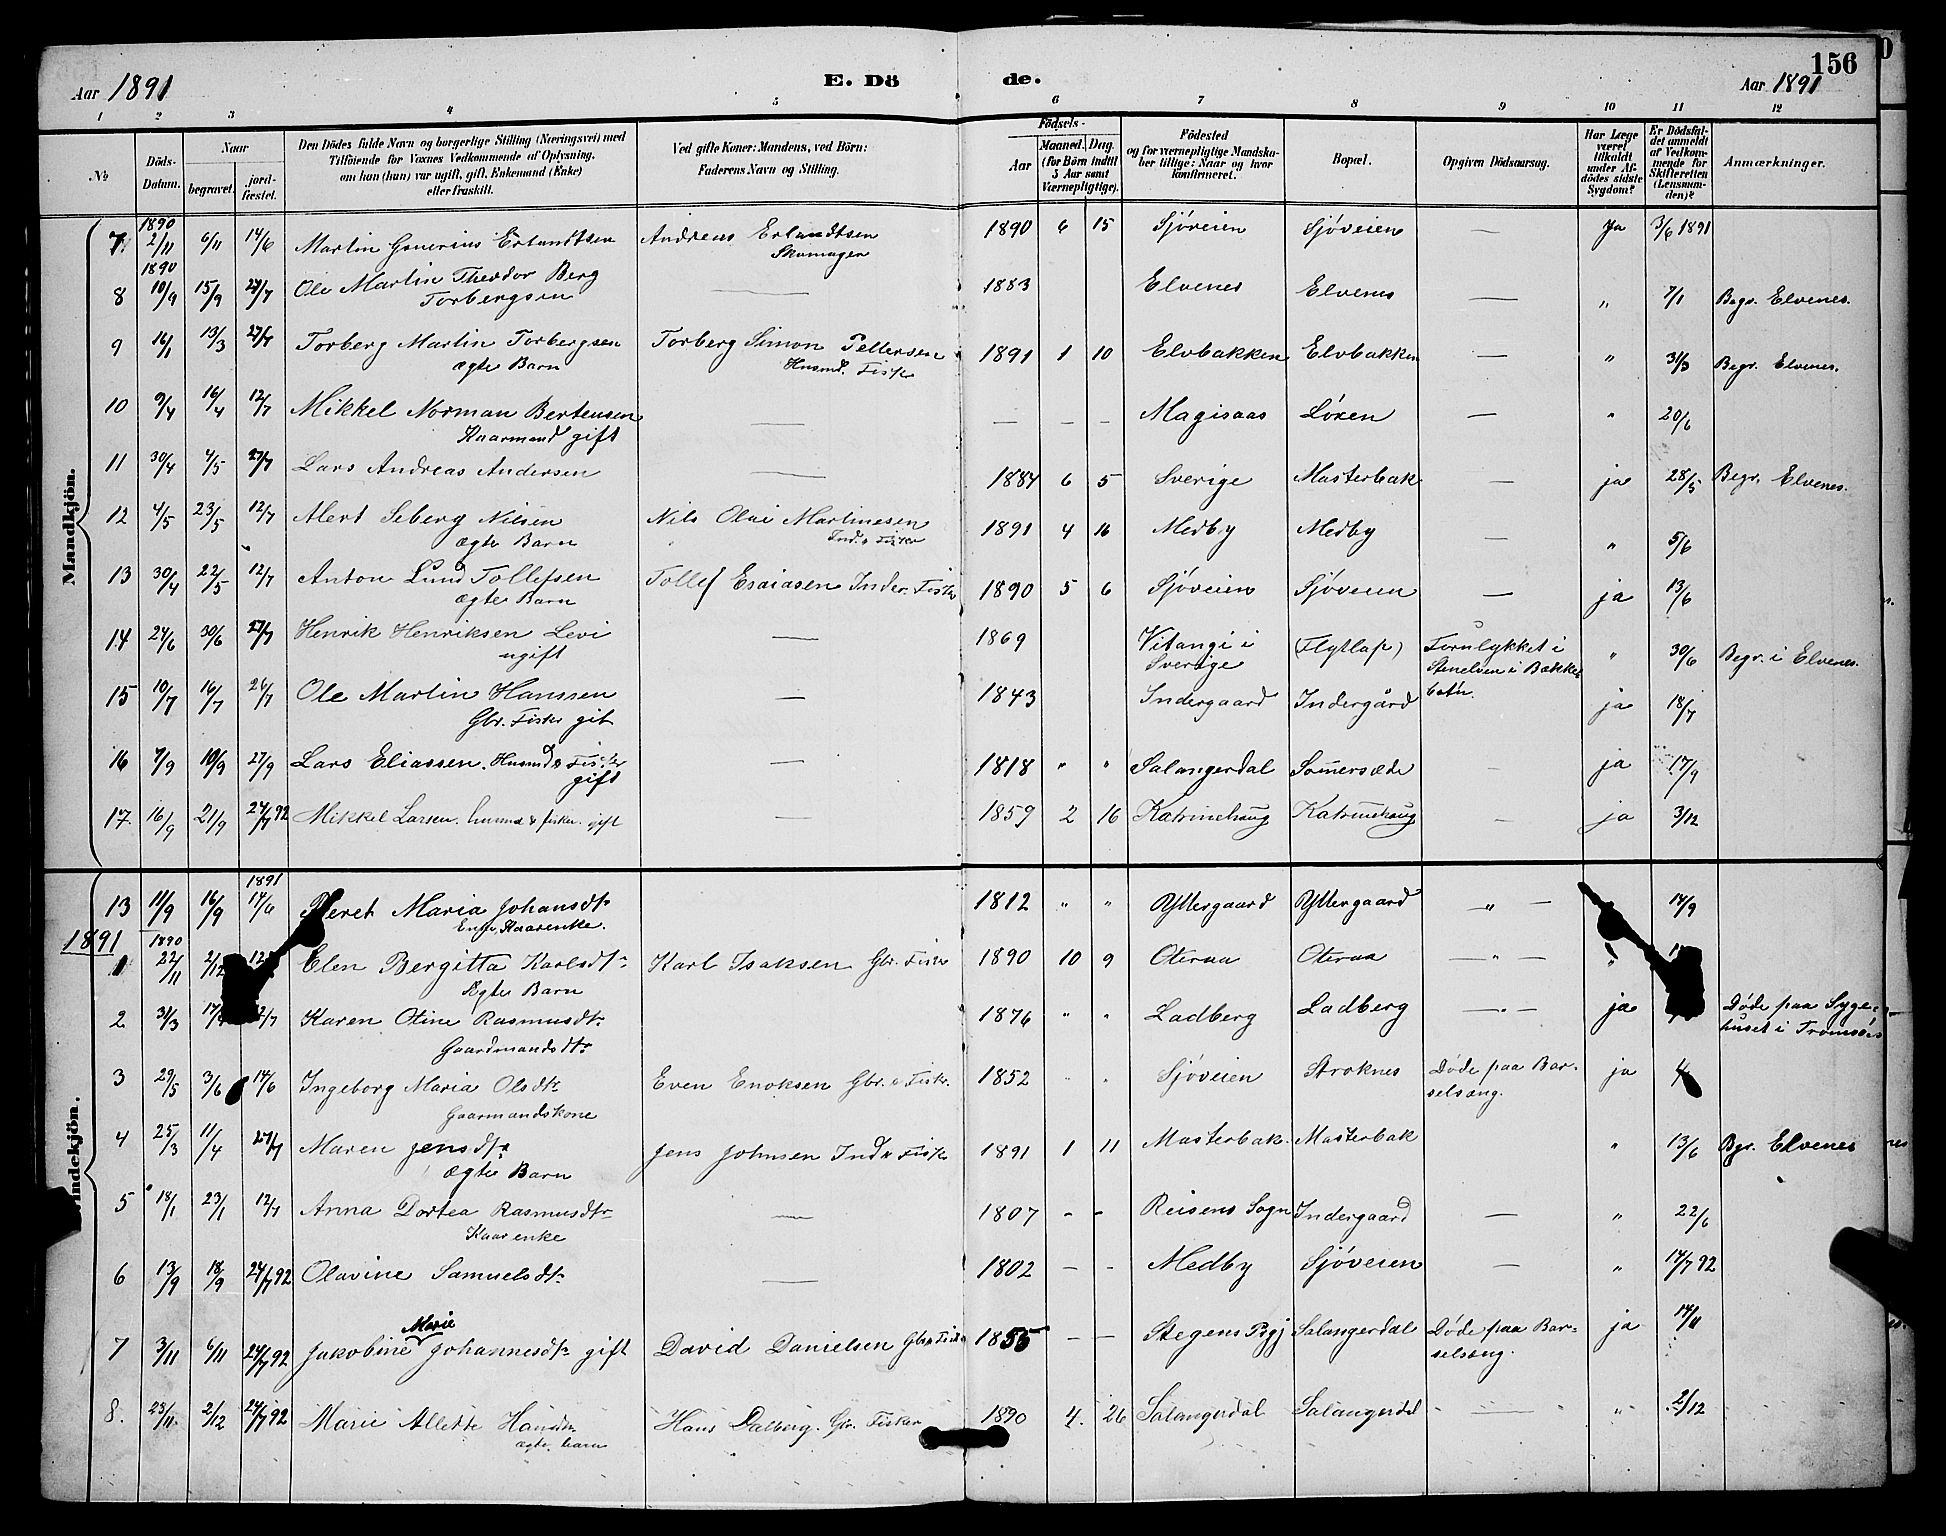 156
Aar 1891 E. Dö de. Aar 1891
1 2 3 4 5 6 7 8 9 10 11 12
№ Döds-Datum. Naar begravet. jordfæstet. Den Dödes fulde Navn og borgerlige Stilling (Næringsvei) med Tilföiende for Voxnes Vedkommende af Oplysning, om han (hun) var ugift, gift, Enkemand (Enke) eller fraskilt. Ved gifte Koner: Mandens, ved Börn: Faderens Navn og Stilling. Födsels- Aar Maaned. Dag. (for Börn indtil 5 Aar samt Værnepligtige). Födested og for værnepligtige Mandskaber tillige: Naar og hvor konfirmeret. Bopæl. Opgiven Dödsaarsag. Har Læge været tilkaldt under Afdödes sidste Sygdom? Er Dödsfaldet anmeldt af Vedkommende for Skifteretten (Lensmanden)? Anmærkninger.
Mandkjön.
7 1890 2/11 6/11 14/6 Martin Erlandtsen Andreas Erlandtsen Skomager 1890 6 15 Sjøveien Sjøveien — Ja 3/6 1891
8 1890 10/9 15/9 27/7 Ole Martin Theodor Berg Torbergsen — 1883 Elvenes Elvenes — " 7/1 Begr. Elvenes.
9 16/1 13/3 27/7 Torberg Martin Torbergsen ægte Barn Torberg Simon Pettersen Husmd. Fisker 1891 1 10 Elvbakken Elvbakken — " 31/3 Begr. Elvenes.
10 9/4 16/4 12/7 Mikkel Norman Bertensen Kaarmand gift — — — — Magisaas Løxen — " 20/6
11 30/4 4/5 27/7 Lars Andreas Andersen — 1884 6 5 Sverige Masterbak — ja 28/5 Begr. Elvenes.
12 4/5 23/5 12/7 Alert Seberg Nilsen ægte Barn Nils Olai Martinesen Ind. o Fisker 1891 4 16 Medby Medby — " 5/6
13 30/4 22/5 12/7 Anton Lund Tollefsen ægte Barn Tollef Esaiasen Inder. Fisker 1890 5 6 Sjøveien Sjøveien — ja 13/6
14 24/6 30/6 27/7 Henrik Henriksen Levi ugift — 1869 Vitangi i Sverige (Flytlap) Forulykket i Stenelven i Bakkebotn. " 30/6 Begr. i Elvenes.
15 10/7 16/7 26/7 Ole Martin Hanssen Gbr. Fisker gift — 1843 Indergaard Indergård ja 18/7
16 7/9 10/9 27/9 Lars Eliassen. Husmd o Fisker gift — 1818 " " Salangerdal Somersæde — ja 17/9
17. 16/9 21/9 24/7 92 Mikkel Larsen. husmd & fisker. gift — 1859 2 16 Katrinehaug Katrinehaug — ja 3/12
Kvindekjön.
13 11/9 16/9 1891 14/6 Beret Maria Johansdtr Enke, Kaarenke. 1812 " " Yttergaard Yttergaard — " — 14/9
1891
1 1890 22/11 2/12 Elen Bergitta Karlsdtr Ægte Barn Karl Isaksen Gbr. Fisker 1890 10 9 Oteraa Oteraa — " — "
2 31/3 Karen Otine Rasmusdtr Gaardmandsdtr 1876 " " Ladberg Ladberg — " — ja Døde paa Sygehuset i Tromsø
3 29/5 3/6 14/6 Ingeborg Maria Olsdtr Gaarmandskone Even Enoksen Gbr. o Fisker. 1852 " " Sjøveien Stroknes Døde paa Barselsæng. ja
4 25/3 11/4 27/7 Maren Jensdtr ægte Barn Jens Johnsen Ind o Fisker 1891 1 11 Masterbak. Masterbak " 13/6 Bgr. Elvenes
5 18/1 23/1 12/7 Anna Dortea Rasmusdtr Kaarenke — 1807 - - Reisens Sogn Indergaard — " 22/6
6 13/9 18/9 24/7 92 Olavine Samuelsdtr — 1802 - - Medby Sjøveien — " 14/7 92
7 3/11 6/11 24/7 92 Jakobine Marie Johannesdtr gift David Danielsen Gbr o Fisker 1855 - - Stegens Pgj Salangerdal Døde paa Barselsæng. ja 14/11
8. 23/11 2/12 24/7 92 Marie Allette Hansdtr ægte barn Hans Dalberg. Gbr. Fisker 1890 4. 26 Salangerdal Salangerdal — " 2/12